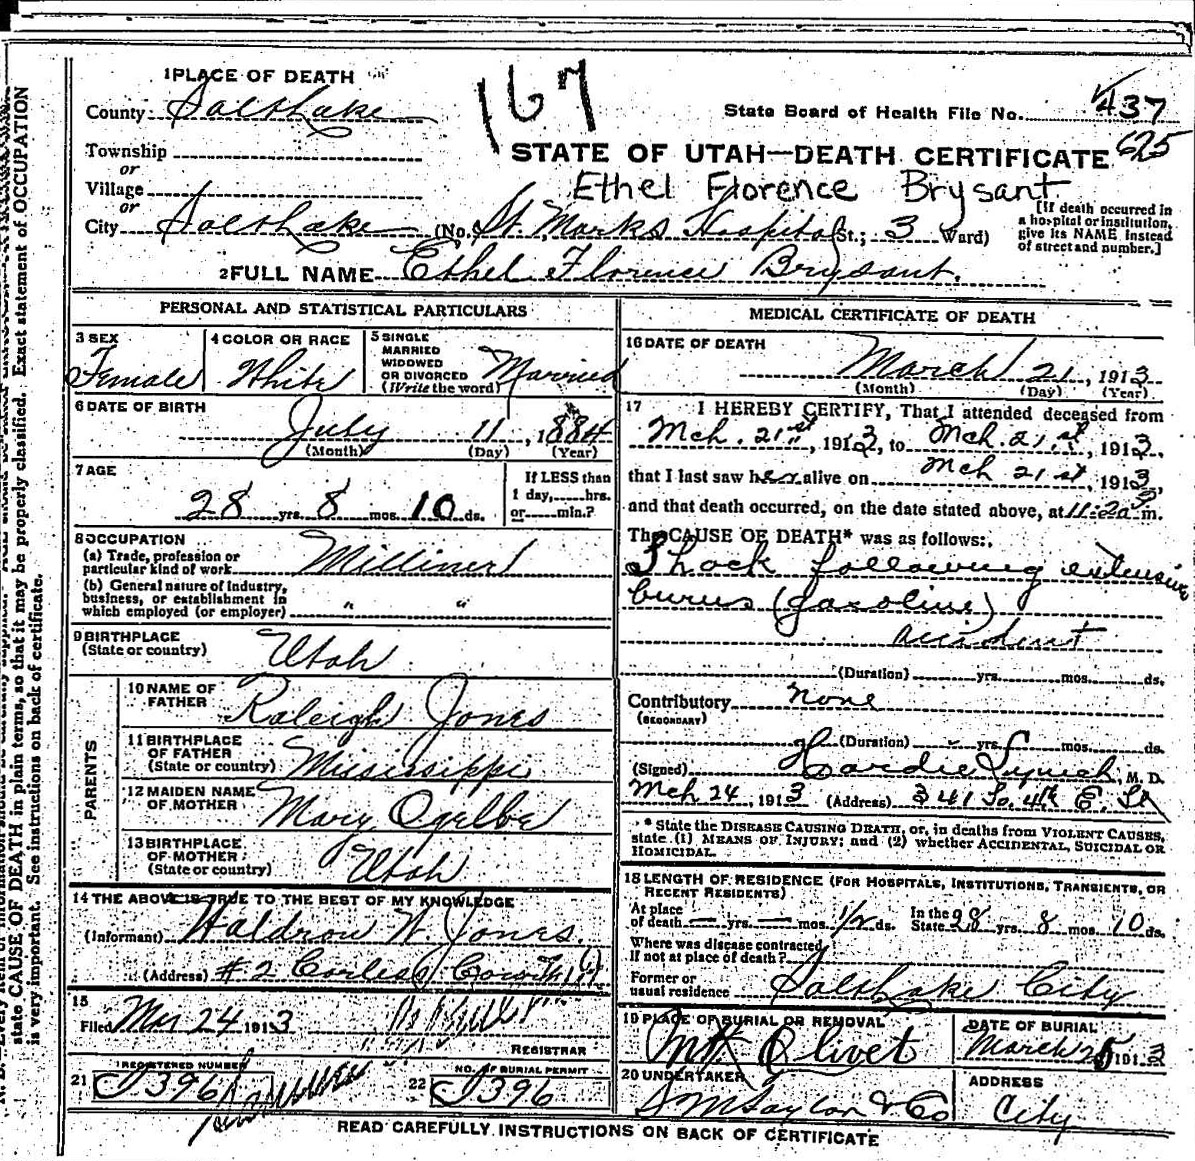 1 PLACE OF DEATH
167
County Salt Lake
State Board of Health File No. 437
625
Township
or
STATE OF UTAH—DEATH CERTIFICATE
Village
Ethel Florence Brysant
or
City Salt Lake (No. St. Marks Hospital St.; 3 Ward)
[If death occurred in
a hospital or institution,
give its NAME instead
of street and number.]
2 FULL NAME Ethel Florence Brysant.
PERSONAL AND STATISTICAL PARTICULARS
3 SEX
Female
4 COLOR OR RACE
White
5 SINGLE
MARRIED
WIDOWED
OR DIVORCED
(Write the word) Married
6 DATE OF BIRTH
July 11, 1884
(Month) (Day) (Year)
7 AGE
28 yrs. 8 mos. 10 ds.
If LESS than
1 day, hrs.
or min.?
8 OCCUPATION
(a) Trade, profession or
particular kind of work Milliner
(b) General nature of industry,
business, or establishment in
which employed (or employer) " "
9 BIRTHPLACE
(State or country) Utah
PARENTS
10 NAME OF
FATHER Raleigh Jones
11 BIRTHPLACE
OF FATHER
(State or country) Mississippi
12 MAIDEN NAME
OF MOTHER Mary Ogelbe
13 BIRTHPLACE
OF MOTHER
(State or country) Utah
14 THE ABOVE IS TRUE TO THE BEST OF MY KNOWLEDGE
(Informant) Waldrow W. Jones.
(Address) #2 Corless
15
Filed Mar 24 1913
REGISTRAR
21 REGISTERED NUMBER
396
22 NO. OF BURIAL PERMIT
396
MEDICAL CERTIFICATE OF DEATH
16 DATE OF DEATH
March 21, 1913
(Month) (Day) (Year)
17 I HEREBY CERTIFY, That I attended deceased from
Mch. 21st, 1913, to Mch. 21st, 1913,
that I last saw her alive on Mch 21st, 1913,
and that death occurred, on the date stated above, at 11:20 m.
The CAUSE OF DEATH* was as follows:
Shock following extensive
burns (gasoline)
accident
(Duration) yrs. mos. ds.
Contributory none
(SECONDARY)
(Duration) yrs. mos. ds.
(Signed) Hardie Lynch, M. D.
Mch 24, 1913 (Address) 341 So. 4th E. St
* State the DISEASE CAUSING DEATH, or, in deaths from VIOLENT CAUSES,
state (1) MEANS OF INJURY; and (2) whether ACCIDENTAL, SUICIDAL OR
HOMICIDAL.
18 LENGTH OF RESIDENCE (FOR HOSPITALS, INSTITUTIONS, TRANSIENTS, OR
RECENT RESIDENTS)
At place
of death — yrs. — mos. 1/2 ds. In the
State 28 yrs. 8 mos. 10 ds.
Where was disease contracted,
If not at place of death?
Former or
usual residence Salt Lake City
19 PLACE OF BURIAL OR REMOVAL
Mt Olivet
DATE OF BURIAL
March 25 1913
20 UNDERTAKER
S M Taylor & Co
ADDRESS
City
READ CAREFULLY INSTRUCTIONS ON BACK OF CERTIFICATE
state CAUSE OF DEATH in plain terms, so that it may be properly classified. Exact statement of OCCUPATION
is very important. See instructions on back of certificate.